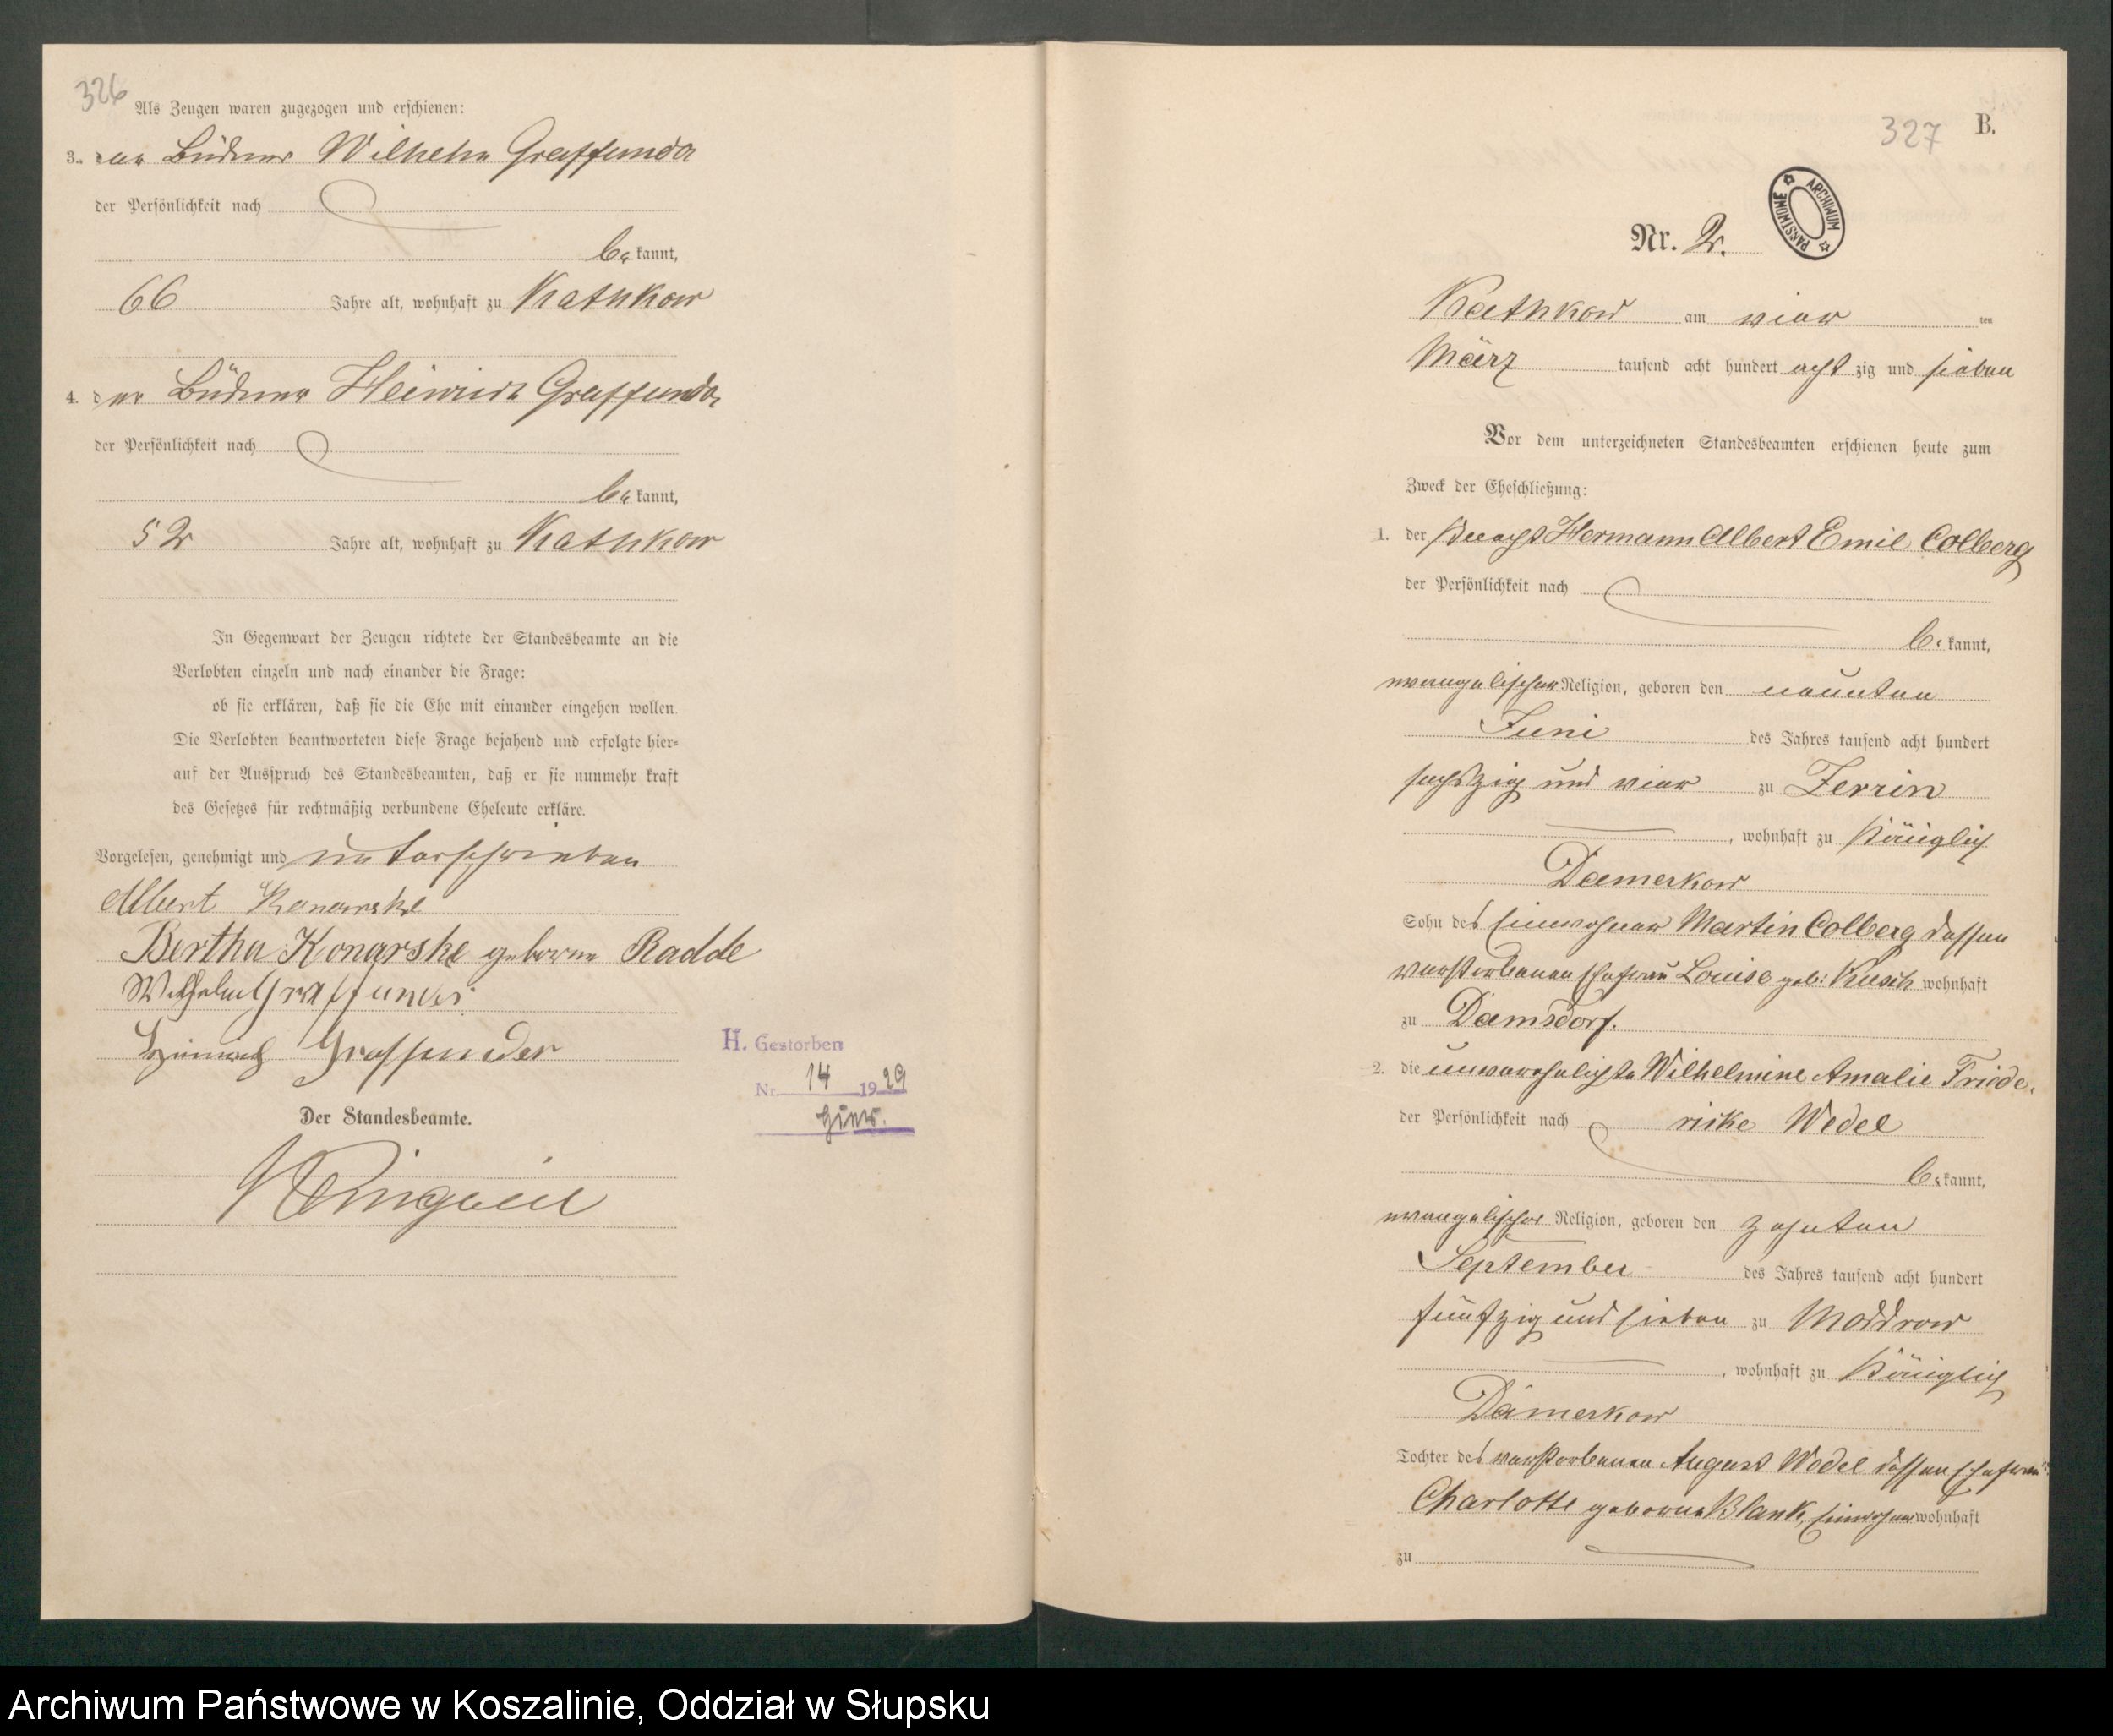 326
Als Zeugen waren zugezogen und erschienen:
3. der Büdner Wilhelm Graffunder
der Persönlichkeit nach
bekannt,
66 Jahre alt, wohnhaft zu Kathkow
4. der Büdner Heinrich Graffunder
der Persönlichkeit nach
bekannt,
52 Jahre alt, wohnhaft zu Kathkow
In Gegenwart der Zeugen richtete der Standesbeamte an die
Verlobten einzeln und nach einander die Frage:
ob sie erklären, daß sie die Ehe mit einander eingehen wollen.
Die Verlobten beantworteten diese Frage bejahend und erfolgte hier-
auf der Ausspruch des Standesbeamten, daß er sie nunmehr kraft
des Gesetzes für rechtmäßig verbundene Eheleute erkläre.
Vorgelesen, genehmigt und unterschrieben
Albert Konarske
Bertha Konarske geborne Radde
Wilhelm Graffunder
Heinrich Graffunder
H. Gestorben
Nr. 14 1929
hier.
Der Standesbeamte.
327
B.
ARCHIWUM PAŃSTWOWE
Nr. 2.
Kathkow am vier ten
März tausend acht hundert acht zig und sieben
Vor dem unterzeichneten Standesbeamten erschienen heute zum
Zweck der Eheschließung:
1. der Knecht Hermann Albert Emil Colberg
der Persönlichkeit nach
bekannt,
evangelischer Religion, geboren den neunten
Juni des Jahres tausend acht hundert
sechszig und vier zu Zerrin
, wohnhaft zu Königlich
Damerkow
Sohn des Einwohner Martin Colberg dessen
verstorbenen Ehefrau Louise geb: Kusch wohnhaft
zu Damsdorf.
2. die unverehelichte Wilhelmine Amalie Friede-
der Persönlichkeit nach rike Wedel
bekannt,
evangelischer Religion, geboren den zehnten
September des Jahres tausend acht hundert
fünfzig und sieben zu Moddrow
, wohnhaft zu Königlich
Damerkow
Tochter des verstorbenen August Wedel dessen Ehefrau
Charlotte geborne Blank, Einwohner wohnhaft
zu
Archiwum Państwowe w Koszalinie, Oddział w Słupsku